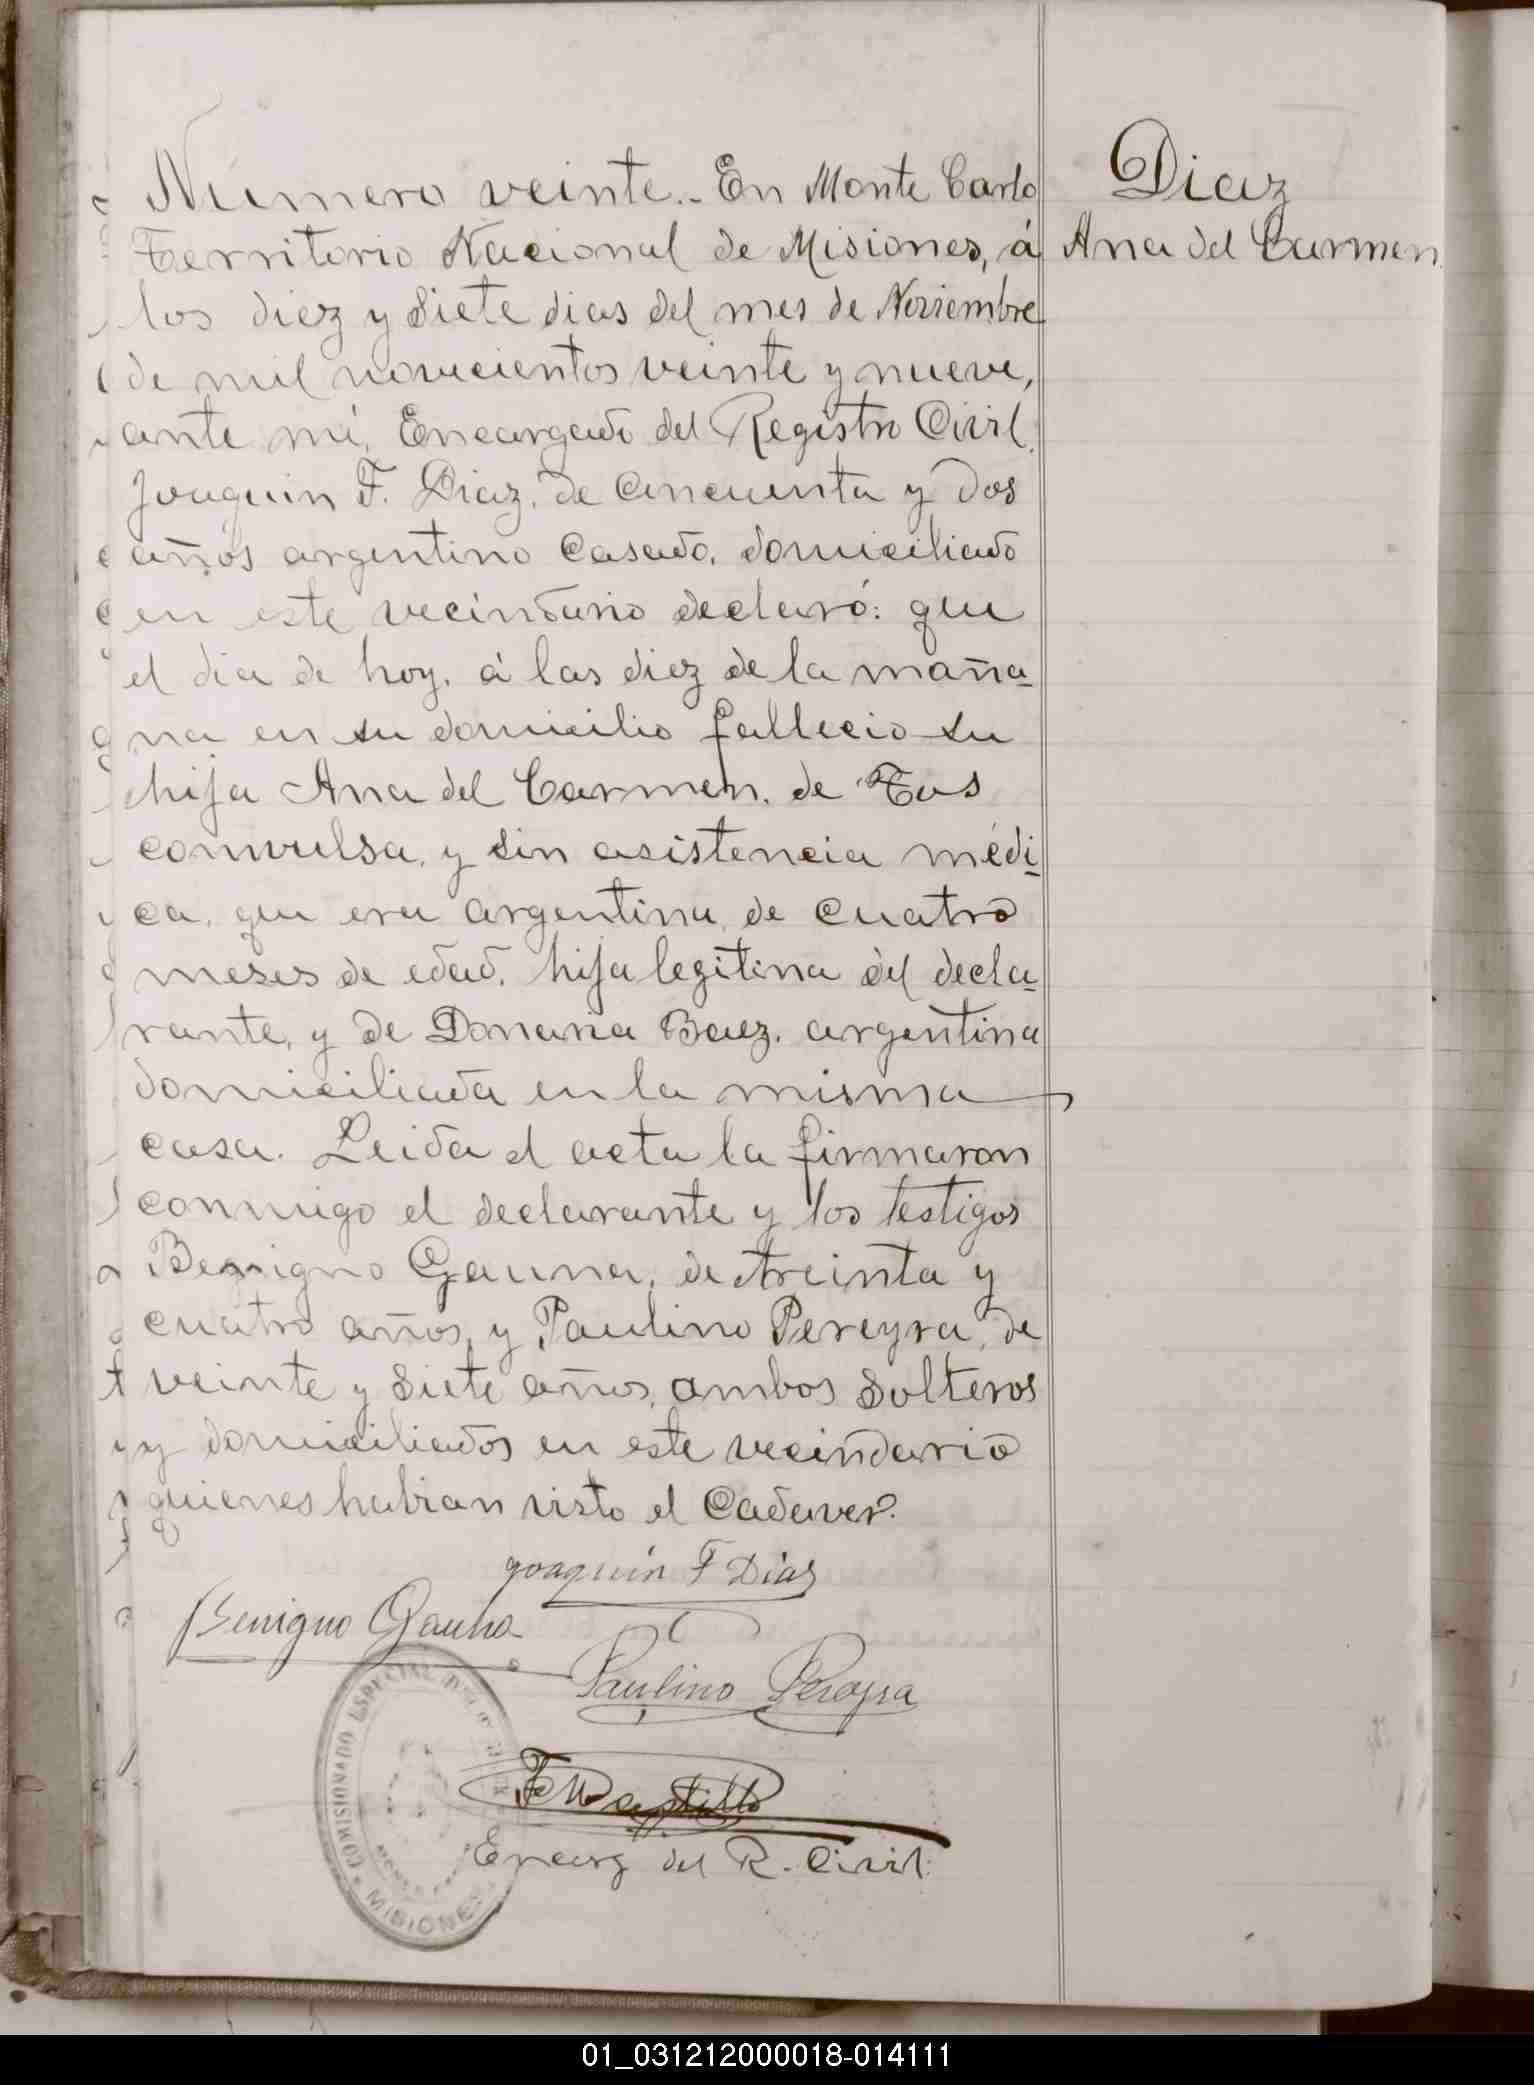 Número veinte.- En Monte Carlo
Territorio Nacional de Misiones, á
los diez y siete dias del mes de Noviembre
de mil novecientos veinte y nueve,
ante mí, Encargado del Registro Civil,
Joaquin F. Diaz, de cincuenta y dos
años argentino casado, domiciliado
en este vecindario declaró: que
el dia de hoy, á las diez de la maña-
na en su domicilio fallecio su
hija Ana del Carmen, de Tos
convulsa, y sin asistencia médi-
ca, que era argentina, de cuatro
meses de edad, hija legitima del decla-
rante, y de Donana Baez, argentina
domiciliada en la misma
casa. Leida el acta la firmaron
conmigo el declarante y los testigos
Benigno Gauna, de treinta y
cuatro años, y Paulino Pereyra, de
veinte y siete años, ambos solteros
y domiciliados en este vecindario
quienes habian visto el Cadaver.
Diaz
Ana del Carmen
Joaquín F Diaz
Benigno Gauna
Paulino Pereyra
Castillo
Encarg del R. Civil
COMISIONADO ESPECIAL
MISIONES
01_031212000018-014111